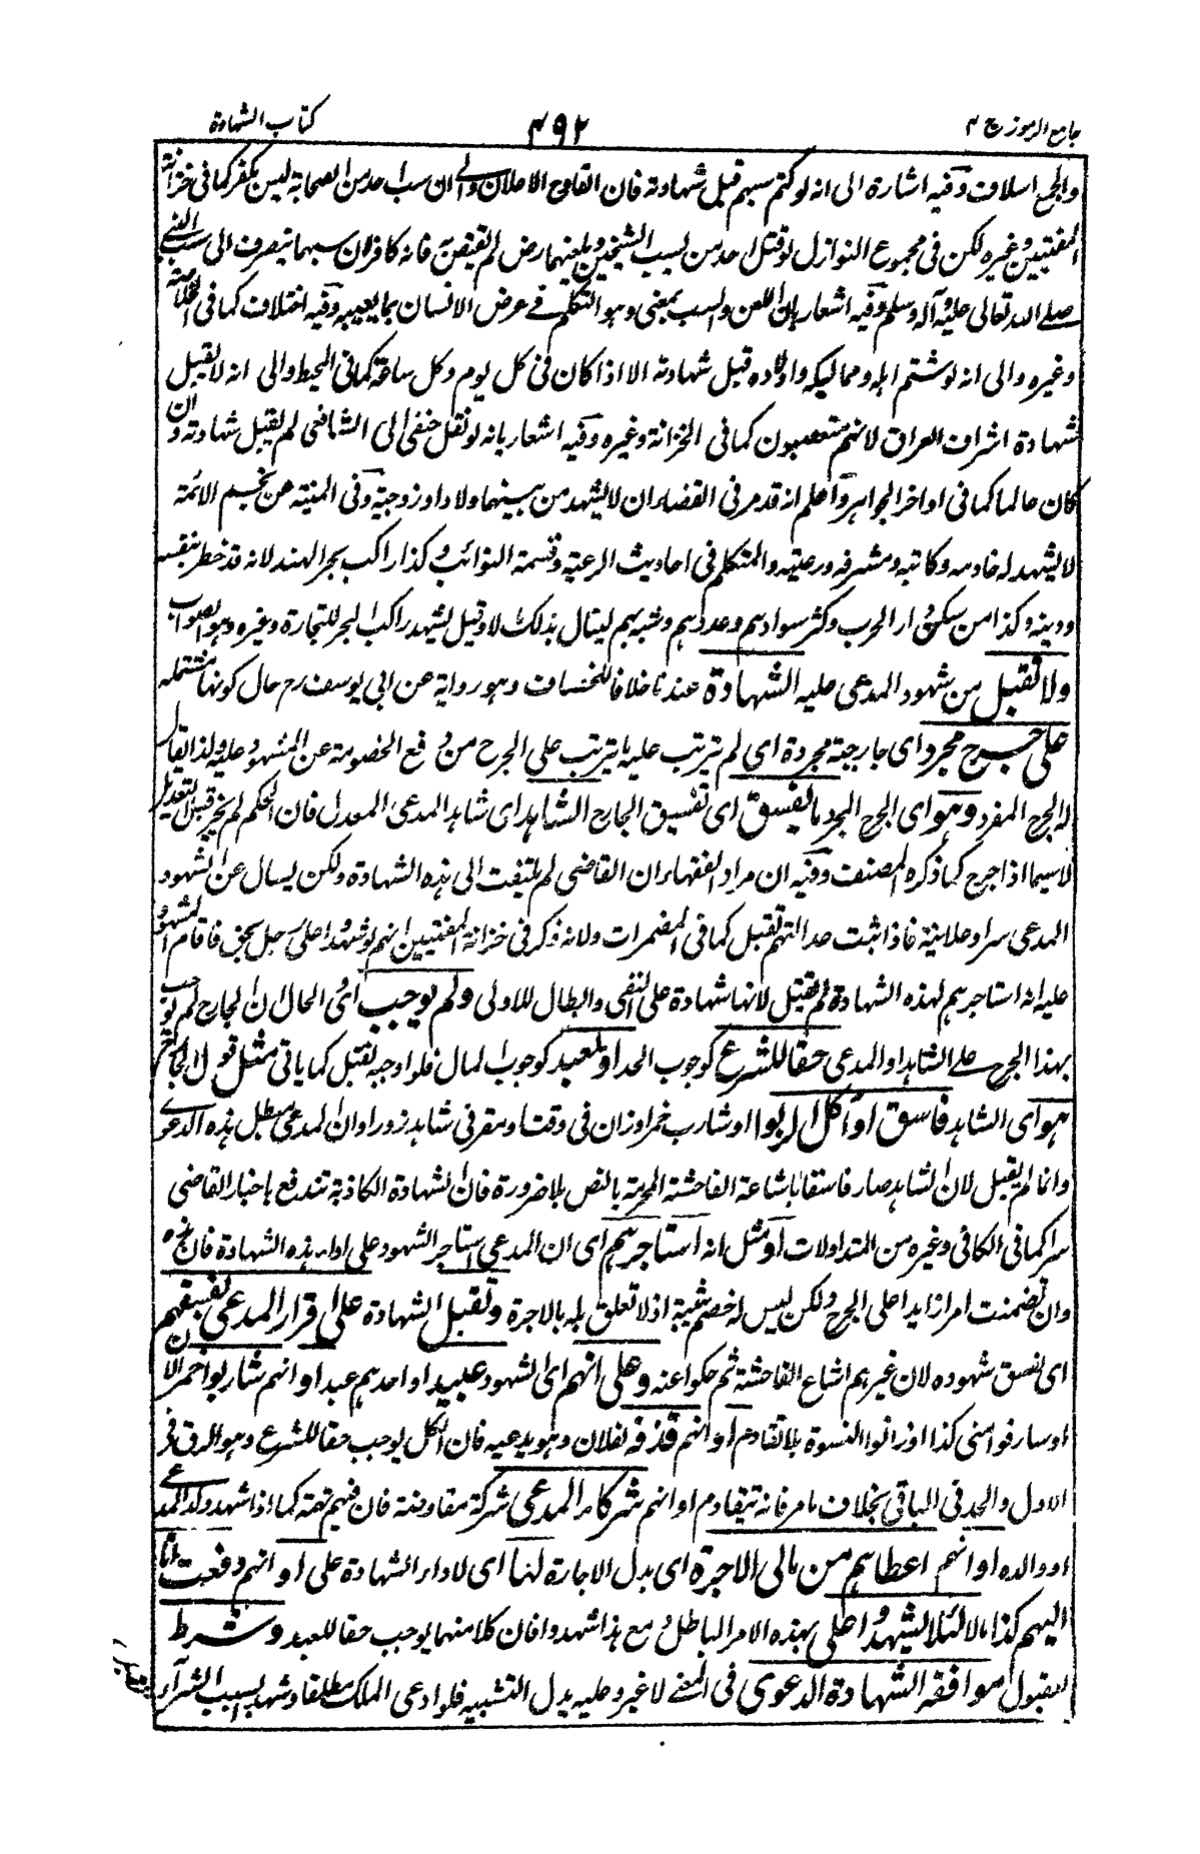 جامع الرموز ج ٣
٤٩٢
كتاب الشهادة
والجمع اسلاف وفيه اشارة الى انه لو كتم سبهم قبل شهادته فان القادح الاعلان والى ان سب احد من الصحابة ليس بكفر كما في خزانة
المفتيين وغيره لكن في مجموع النوازل لو قتل احد من يسب الشيخين ويلعنهما رض لم يقتص به فانه كافر لان سبهما ينصرف الى سب النبي
صلى الله تعالى عليه وآله وسلم وفيه اشعار بان اللعن والسب بمعنى وهو التكلم في عرض الانسان بما يعيبه وفيه اختلاف كما في الخلاصة
وغيره والى انه لو شتم اهله ومماليكه واولاده قبل شهادته الا اذا كان في كل يوم وكل ساعة كما في المحيط والى انه لا يقبل
شهادة اشراف العراق لانهم متعصبون كما في الخزانة وغيره وفيه اشعار بانه لو نقل حنفي الى الشافعي لم يقبل شهادته وان
كان عالما كما في اواخر الجواهر واعلم انه قد مر في القضاء ان لا يشهد من بينهما ولاد او زوجية وفي المنية عن نجم الائمة
لا يشهد له خادمه وكاتبه ومشرفه ورعيته والمتكلم في احاديث الرعية وقسمة النوائب وكذا راكب بحر الهند لانه قد خطر بنفسه
ودينه وكذا من سكن دار الحرب وكثر سوادهم وعددهم وشبه بهم لينال بذلك مالا وقيل يشهد راكب البحر للتجارة وغيره وهو الصواب
ولا تقبل من شهود المدعى عليه الشهادة عندنا خلافا للخصاف وهو رواية عن ابي يوسف رح حال كونها مشتملة
على جرح مجرد اى جارحية مجردة اى لم يترتب عليه ما يترتب على الجرح من دفع الخصومة عن المشهود عليه ولذا يقال
له الجرح المفرد وهو اى الجرح المجرد ما يفسق اى تفسيق الجارح الشاهد اى شاهد المدعى المعدل فان الحكم لم يجز قبل التعديل
لا سيما اذا جرح كما ذكره المصنف وفيه ان مراد الفقهاء ان القاضى لم يلتفت الى هذه الشهادة ولكن يسال عن الشهود
المدعى سرا وعلانية فاذا ثبت عدالتهم تقبل كما في المضمرات ولانه ذكر في خزانة المفتيين انهم لو شهدوا على رجل بحق فاقام المشهود
عليه انه استاجرهم لهذه الشهادة لم يقبل لانها شهادة على النفى وابطال للاولى ولم يوجب اى الحال ان الجارح لم يوجب
بهذا الجرح على الشاهد او المدعى حقا للشرع كوجوب الحد او للعبد كوجوب المال فلو اوجبه تقبل كما ياتى مثل قول الجارح
هو اى الشاهد فاسق او آكل الربوا او شارب خمر او زان في وقت او مقر في شاهد زور او ان المدعى مبطل بهذه الدعوى
وانما لم يقبل لان الشاهد صار فاسقا باشاعة الفاحشة المحرمة بالنص بلا ضرورة فان الشهادة الكاذبة تندفع باخبار القاضى
سرا كما في الكافي وغيره من المتداولات او مثل انه استاجرهم اى ان المدعى استاجر الشهود على اداء هذه الشهادة فان هذه
وان تضمنت امرا زايدا على الجرح ولكن ليس له خصم يثبته اذ لا تعلق له بالاجرة وتقبل الشهادة على اقرار المدعى بفسقهم
اى بفسق شهوده لان غيرهم اشاع الفاحشة ثم حكوا عنه وعلى انهم اى الشهود عبيد او احدهم عبد او انهم شاربوا خمر الآن
او سارقوا منى كذا او زانوا النسوة بلا تقادم او انهم قذفة لفلان وهو يدعيه فان الكل يوجب حقا للشرع وهو الرق في
الاول والحد في الباقى بخلاف ما مر فانه تيقادم او انهم شركاء المدعى شركة مفاوضة فان فيهم تهمة كما اذا شهد ولد المدعى
او والده او انهم اعطاهم من مالى الاجرة اى بدل الاجارة لنا اى لاداء الشهادة على او انهم دفعت انا
اليهم كذا مالا لئلا يشهدوا على بهذه الامر الباطل ومع هذا شهدوا فان كلا منهما يوجب حقا للعبد وشرط
لقبول موافقة الشهادة الدعوى في المعنى لا غير وعليه يدل التشبيه فلو ادعى الملك مطلقا وشهد بسبب الشراء